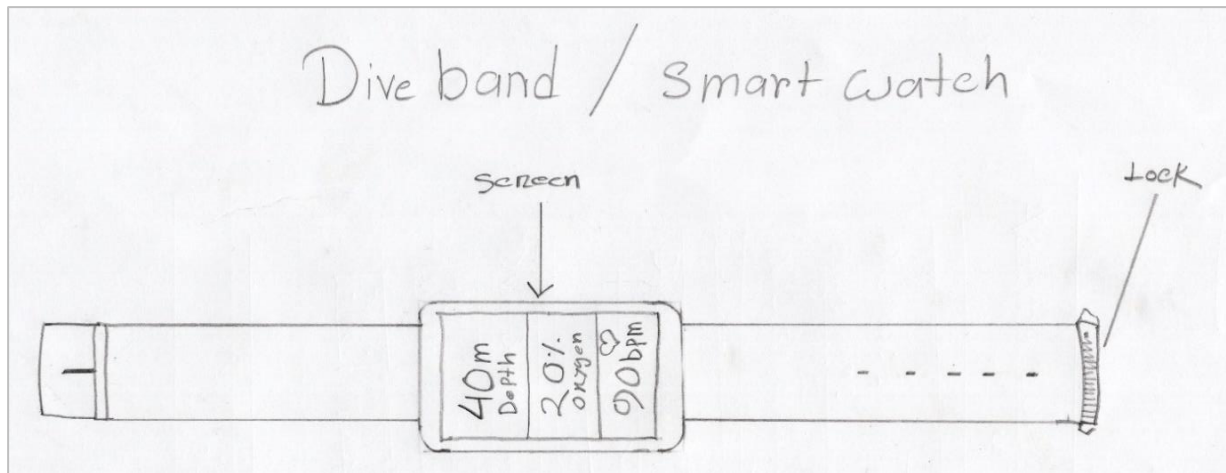 Dive band / smart watch
screen
Lock
40m
Depth
20%
oxygen
90bpm